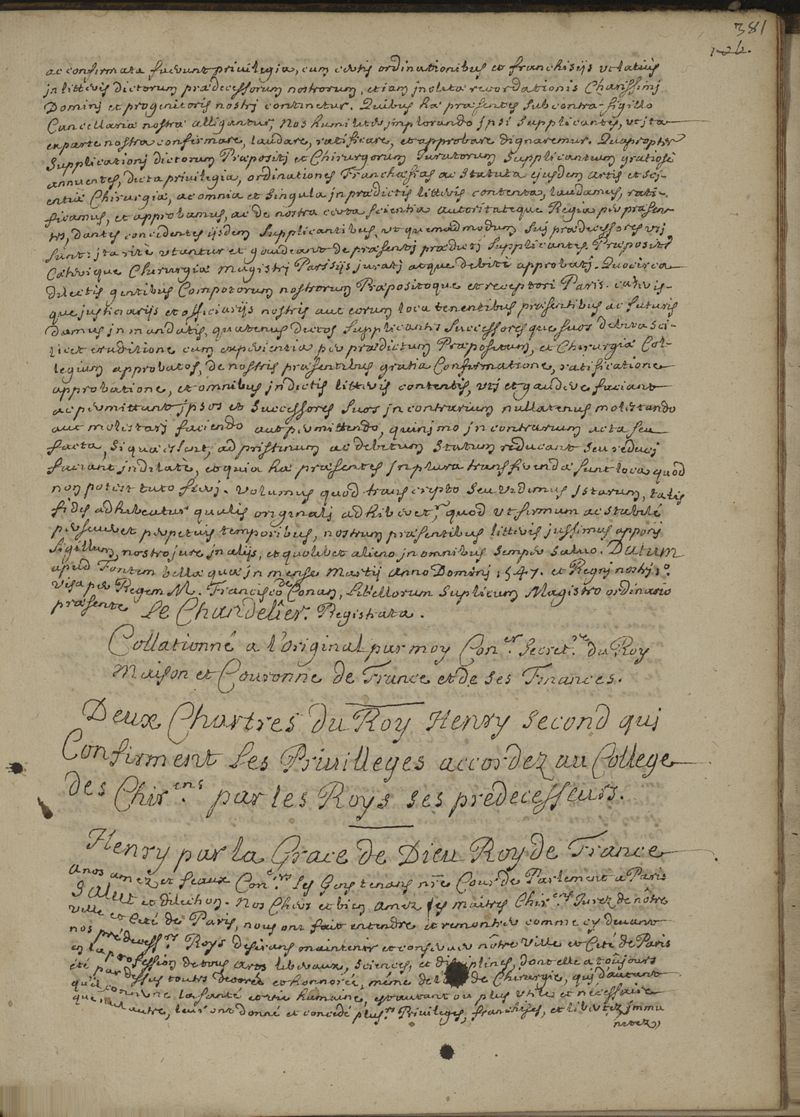 381
126.
ac confirmata fuerunt privilegia, cum certis ordinationibus et franchisijs vt latius
jn litteris dictorum prædecessorum nostrorum, et iam jnclitæ recordationis Charissimj
Dominj et progenitoris nostrj continetur. Quibus hæ præsentes sub contra-sigillo
Cancellariæ nostræ alligantur, nos humiliter jmplorando jpsi supplicantes, vt jta
ex parte nostra confirmare, laudare, ratificare, et approbare dignaremur. Quapropter
supplicationj dictorum Præpositj et Chirurgorum Juratorum supplicantium gratiosè
annuentes, dicta privilegia, ordinationes Franchæsias ac statuta ejusdem artis et sci-
entiæ Chirurgiæ, ac omnia et singula jn prædictis litteris contenta, laudamus, rati-
ficamus, et approbamus, ac de nostra certa scientia autoritateque Regia per præsen-
tes, dantes concedentes ijsdem supplicantibus, vt quemadmodum suj prædecessores vsj
sunt jta ritè vtantur et gaudeant de præsentj prædictj supplicantes Præpositus
Cæterique Chirurgiæ magistrj Parisijs juratj atque debitè approbatj. Quocirca
dilectis gentibus Compotorum nostrorum Præpositoque et receptori Paris. cæteris-
que justiciarijs et officiarijs nostris aut eorum loca tenentibus præsentibus ac futuris
damus jn mandatis, quatenus dictos supplicantes successoresque suos debita sci-
licet eruditione cum experientia per prædictum Præpositum, et Chirurgiæ Col-
legium approbatos, de nostris præsentibus gratia Confirmatione, ratificatione
approbatione, et omnibus jn dictis litteris contentis, vtj et gaudere faciant
ac permittant jpsos et successores suos jn contrarium nullatenus molestando
aut molestarj faciendo aut permittendo, quinjmo jn contrarium acta seu
facta, si quæ essent, ad pristinum ac debitum statum reducant seu reducj
faciant jndilatè, et quia hæ præsentes jn plura transferendæ sunt loca quod
non potest tuto fierj. Volumus quod transcripto seu vidimus jstarum, talis
fides adhibeatur qualis originalj adhiberetur, quod vt firmum ac stabile
perseveret perpetuis temporibus, nostrum præsentibus litteris jussimus apponj
sigillum, nostro jure jn alijs, et quolibet alieno jn omnibus semper salvo. Datum
apud Fontem bellæ quæ jn mense Martij Anno Dominj 1547. et Regnj nostrj 1º.
Visa per Regem M. Francisco de Conan, Libellorum suplicum Magistro ordinario
præsente Le Chandelier. Registrata.
Collationné a l'original par moy Con.er Secret.re du Roy
Maison et Couronne de France et de ses Finances.
Deux Chartres du Roy Henry second qui
Confirment les Priuilleges accordez au College
des Chir.ens par les Roys ses predecesseurs.
Henry par la Grace de Dieu Roy de France
A nos amez et feaux Con.ers les Gens tenans nre Cour de Parlement a Paris
Salut et dilection. Nos Chers et bien amez les maitres Chir.ens Jurez de nôtre
ville et Cité de Paris, nous ont fait entendre et remontrer comme cy devant
nos predecess.rs Roys desirans maintenir et conserver nôtre Ville et Cité de Paris
en la profession de tous arts liberaux, sciences, et disciplines, dont elle a toujours
été par dessus toutes decorée et honnorée, même de l' de Chirurgie, qui d'autant
qu'il concerne la santé et vie humaine, est autant ou plus vtile et necessaire
que nul autre, leur ont donné et concedé plus.rs Privileges, franchises, et libertez, jmmu
nitez